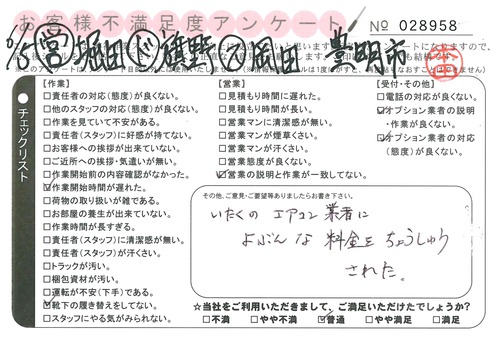 お客様不満足度アンケート
No 028958
営 堀田 旗野 岡田 豊明市
チェックリスト
【作業】
□責任者の対応(態度)が良くない。
□他のスタッフの対応(態度)が良くない。
□作業を見ていて不安がある。
□責任者(スタッフ)に好感が持てない。
□お客様への挨拶が出来ていない。
□ご近所への挨拶・気遣いが無い。
□作業開始前の内容確認がなかった。
☑作業開始時間が遅れた。
□荷物の取り扱いが雑である。
□お部屋の養生が出来ていない。
□作業時間が長すぎる。
□責任者(スタッフ)に清潔感が無い。
□責任者(スタッフ)が汗くさい。
□トラックが汚い。
□梱包資材が汚い。
□運転が不安(下手)である。
☑靴下の履き替えをしてない。
□スタッフにやる気がみられない。
【営業】
□見積もり時間に遅れた。
□見積もり時間が長い。
□営業マンに清潔感が無い。
□営業マンが煙草くさい。
□営業マンが汗くさい。
□営業態度が良くない。
☑営業の説明と作業が一致してない。
【受付・その他】
□電話の対応が良くない。
☑オプション業者の説明
・作業が良くない。
☑オプション業者の対応
(態度)が良くない。
その他、ご意見・ご要望等ありましたらお書き下さい。
いたくの エアコン 業者に
よぶんな 料金を ちょうしゅう
された。
☆当社をご利用いただきまして、ご満足いただけたでしょうか?
□不満 □やや不満 ☑普通 □やや満足 □満足